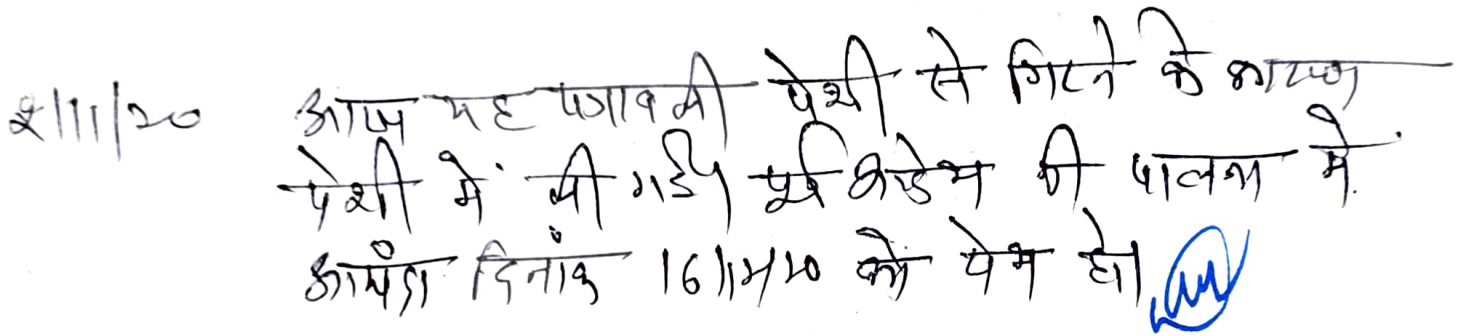 2/11/20 आज यह पत्रावली पेशी से गिरने के कारण
पेशी में ली गई। पूर्व आदेश की पालना में
आयंदा दिनांक 16/11/20 को पेश हो।